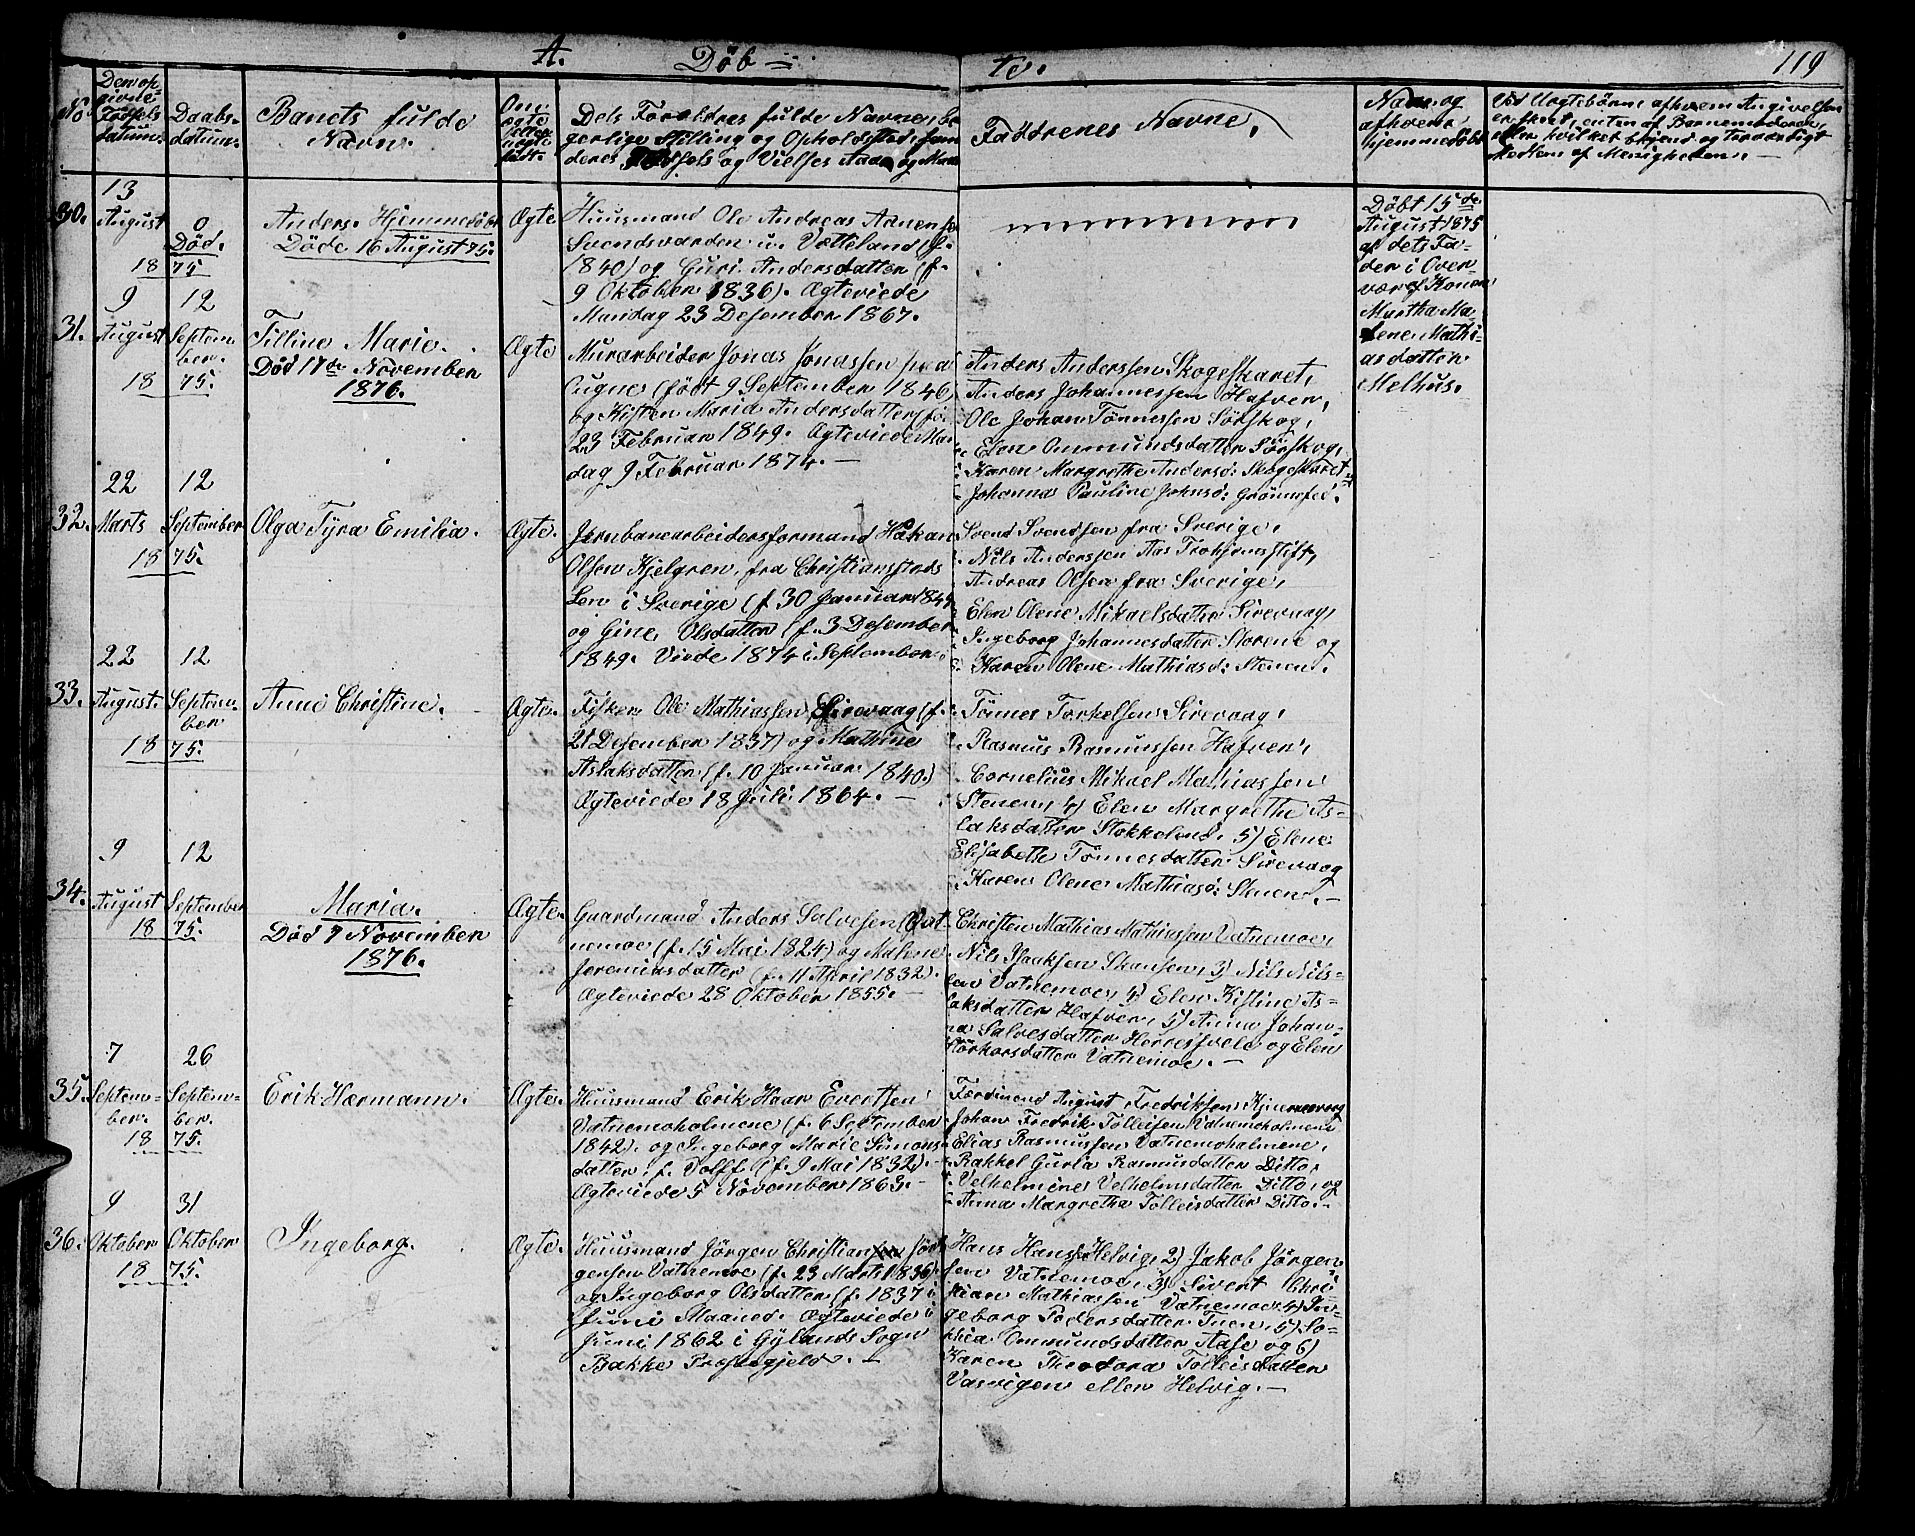 A. Døb= te.
119
No.
Den op-
givne
Fødsels
datum.
Daabs-
datum.
Barnets fulde
Navn.
Om
ægte
eller
uægte
født.
Dets Forældres fulde Navne, bo
gerlige Stilling og Opholdssted, sam
deres Fødsels og Vielses Aar og
Faddrenes Navne.
Naar og
af hvem
hjemmedøbt
Ved Uægtebørn af hvem Angivelsen
er skeet, enten af Barnemoderen,
eller hvilket bekjend og troværdigt
Medlem af Menigheden. —
30.
13
August
18
0
Død.
75
Anders. Hjemmedøbt
Døde 16 August 75.
Ægte
Huusmand Ole Andreas Aanensen
Svendsvarden u. Vætteland (f.
1840) og Guri Andersdatter (f.
9 Oktober 1836). Ægteviede
Mandag 23 Desember 1867.
Døbt 15de
August 1875
af dets Fa-
der i Over-
vær af Konen
Martha Ma-
lene Mathi-
asdatter
Melhus.
31.
9
August
18
12
Septem-
ber.
75.
Tilline Marie.
Død 17de November
1876.
Ægte
Murarbeider Jonas Jonassen paa
Cugne (født 9 September 1846)
og Kisten Maria Andersdatter (fø
23 Februar 1849. Ægteviede Man
dag 9 Februar 1874. —
Anders Anderssen Skogeskaret,
Anders Johannessen Hafven,
Ole Johan Tønnessen Sørskog,
Elen Ommundsdatter Sørskog,
Karen Margrethe Andersd: Skogeskaret
Johanna Pauline Johnsd: Grønnefed.
32.
22
Marts
18
12
September
75.
Olga Tyra Emilia.
Ægte.
Jernbanearbeidersformand Håkan
Olsen Kjelgren, fra Christianstads
Len i Sverige (f. 30 Januar 184
og Gine Olsdatter (f. 3 Desember
1849. Viede 1874 i September
Svend Svendsen fra Sverige,
Nils Anderssen Aas Trohjems stift,
Andreas Olsen fra Sverige,
Elen Olene Mikaelsdatter Sirevaag,
Ingeborg Johannesdatter Storene og
Karen Olene Mathiasd: Stenen.
33.
22
August.
18
12
Septem-
ber
75.
Anne Christine.
Ægte.
Fisker Ole Mathiassen Sirevaag (f.
21 Desember 1837) og Mathine
Aslaksdatter (f. 10 Januar 1840.)
Ægteviede 18 Juli 1864. —
Tønnes Torkelsen Sirevaag,
Rasmus Rasmussen Hafven,
Cornelius Mikael Mathiassen
Stenen, 4) Elen Margrethe As-
laksdatter Stokkeland, 5) Elene
Elisabeth Tønnesdatter Sirevaag
Karen Olene Mathiasd: Stenen. —
34.
9
August
18
12
September
75.
Maria.
Død 7 November
1876.
Ægte.
Gaardmand Anders Salvesen Vat
nemoe (f. 15 Mai 1824) og Malene
Jeremiasdatter (f. 11 April 1832).
Ægteviede 28 Oktober 1855. —
Christen Mathias Mathiassen Vatnemoe,
Nils Isaaksen Skansen, 3) Nils Nils-
sen Vatnemoe, 4) Elen Kistine As-
laksdatter Hafven, 5) Anna Johan-
na Salvesdatter Herresfvele og Elen
Størkorsdatter Vatnemoe. —
35.
7
Septem-
ber.
18
26
Septem-
ber.
75.
Erik Harmann.
Ægte.
Huusmand Erik Haar Evertsen
Vatnemoholmene (f. 6 September
1842). og Ingeborg Marie Simons-
datter, f. Volff (f. 9 Mai 1832).
Ægteviede 5 November 1863. —
Ferdinend August Fredriksen,
Johan Fredrik Tolleisen Vatnemoholmene
Elias Rasmussen Vatnemoholmene,
Rakkel Guria Rasmusdatter Ditto,
Velhelmine Velhelmsdatter Ditto, og
Anna Margretha Tolleisdatter Ditto. —
36.
9
Oktober
18
31
Oktober
75.
Ingeborg.
Ægte.
Huusmand Jørgen Christian Jør
gensen Vatnemoe (f. 23 Marts 1836).
og Ingeborg Olsdatter (f. 1837 i
Juni Maaned. Ægteviede i
Juni 1862 i Gylands Sogn
Bakke Præstegjeld. —
Hans Hansen Helvig, 2) Jakob Jørgen-
sen Vatnemoe, 3) Sivert Chri-
stian Mathiassen Vatnemoe 4) In-
geborg Pedersdatter Tuen, 5) So-
phia Ommundsdatter Aase og 6)
Karen Theodora Tolleisdatter
Vasvigen eller Helvig. —